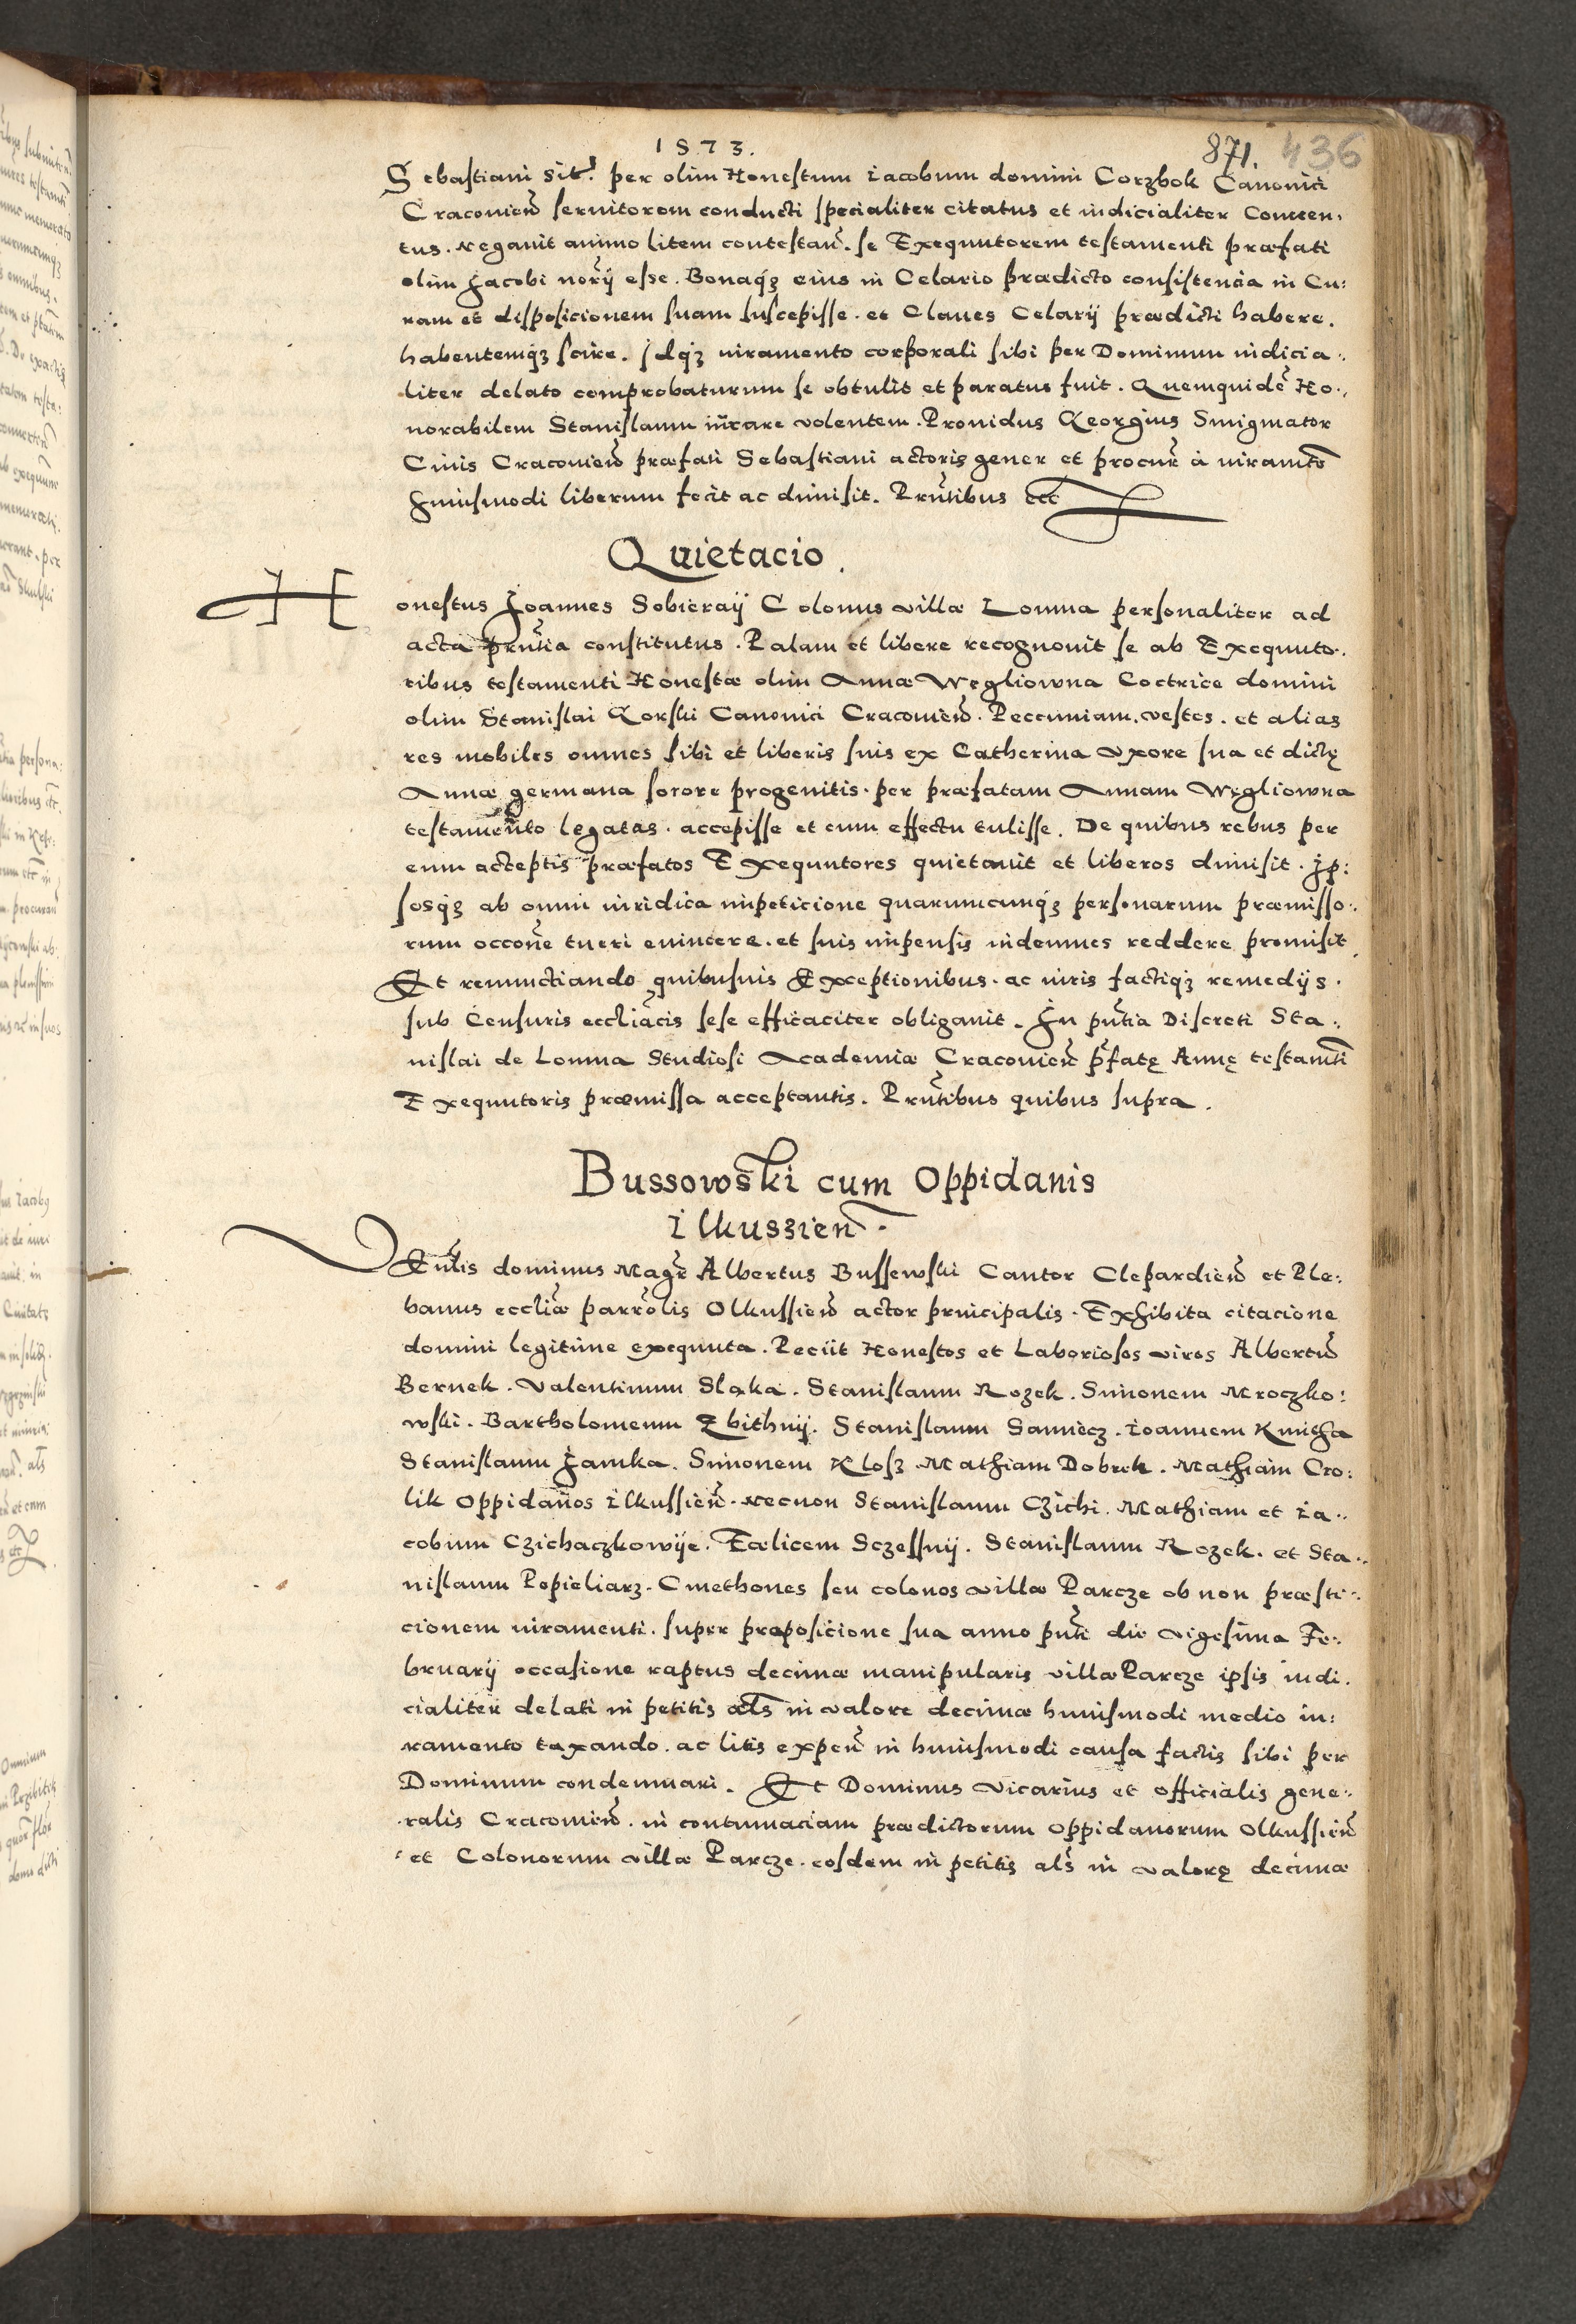 1573.
871. 436
Sebastiani sit̃. per olim Honestum Iacobum domini Corzbok Canonici
Cracouien̄ seruitorem conducti specialiter citatus et iudicialiter Conuen:
tus. Negauit animo litem contestan̄. se Exequutorem testamenti præfati
olim Jacobi nor̃ij esse. Bonaqꝫ eius in Celario prædicto consistencia in Cu:
ram et disposicionem suam suscepisse. et Claues Celarij prædicti habere.
habentemqꝫ scire. Idqꝫ iuramento corporali sibi per Dominum iudicia:
liter delato comprobaturum se obtulit et paratus fuit. Quemquidẽ Ho:
norabilem Stanislaum iurare volentem. Prouidus Georgius Smigmator
Ciuis Cracouien̄ præfati Sebastiani actoris gener et procur̃ à iuramt̃o
huiusmodi liberum fecit ac dimisit. Prñtibus etc
Quietacio.
Honestus Joannes Sobieraij Colonus villæ Lomna personaliter ad
acta prñtia constitutus. Palam et libere recognouit se ab Exequuto:
ribus testamenti Honestæ olim Annæ Wegliowna Coctrice domini
olim Stanislai Gorski Canonici Cracouien̄. Pecuniam. vestes. et alias
res mobiles omnes sibi et liberis suis ex Catherina vxore sua et dictę
Annæ germana sorore progenitis. per præfatam Annam Wegliowna
testamento legatas. accepisse et cum effectu tulisse. De quibus rebus per
eum acceptis præfatos Exequutores quietauit et liberos dimisit. Jp:
sosqꝫ ab omni iuridica impeticione quarumcunqꝫ personarum præmisso:
rum occõne tueri euincere. et suis impensis indemnes reddere promisit
Et renunctiando quibusuis Exceptionibus. ac iuris factiqꝫ remedijs.
sub Censuris eccliãcis sese efficaciter obligauit. In pñtia Discreti Sta:
nislai de Lomna Studiosi Academiæ Cracouien̄ p̃fatę Annę testamt̃i
Exequutoris præmissa acceptantis. Prñtibus quibus supra.
Bussowski cum Oppidanis
Ilkuszien̄.
Venlis dominus Magr̃ Albertus Bussewski Cantor Clepardien̄ et Ple:
banus eccliæ parrolis Olkussien̄ actor principalis. Exhibita citacione
domini legitime exequuta. Peciit Honestos et Laboriosos viros Albertū
Bernek. Valentinum Slaka. Stanislaum Rozek. Simonem Mroczko:
wski. Bartholomeum Zbithnij. Stanislaum Samiecz. Ioannem Kmitha
Stanislaum Jamka. Simonem Klosz. Mathiam Dobrek. Mathiam Cro:
lik Oppidanos Ilkussien̄. necnon Stanislaum Czichi. Mathiam et Ia:
cobum Czichaczkowije. Fælicem Sczessnij. Stanislaum Rozek. et Sta:
nislaum Popieliarz. Cmethones seu colonos villæ Parcze ob non præsti:
cionem iuramenti. super proposicione sua anno pñti die vigesima Fe:
bruarij occasione raptus decimæ manipularis villæ Parcze ipsis iudi.
cialiter delati in petitis als̃ in valore decimæ huiusmodi medio iu:
ramento taxando. ac litis expen̄ in huiusmodi causa factis sibi per
Dominum condemnari. Et Dominus Vicarius et officialis gene:
ralis Cracouien̄. in contumaciam prædictorum oppidanorum Olkussien̄
et Colonorum villæ Parcze. eosdem in petitis als̃ in valorę decimæ